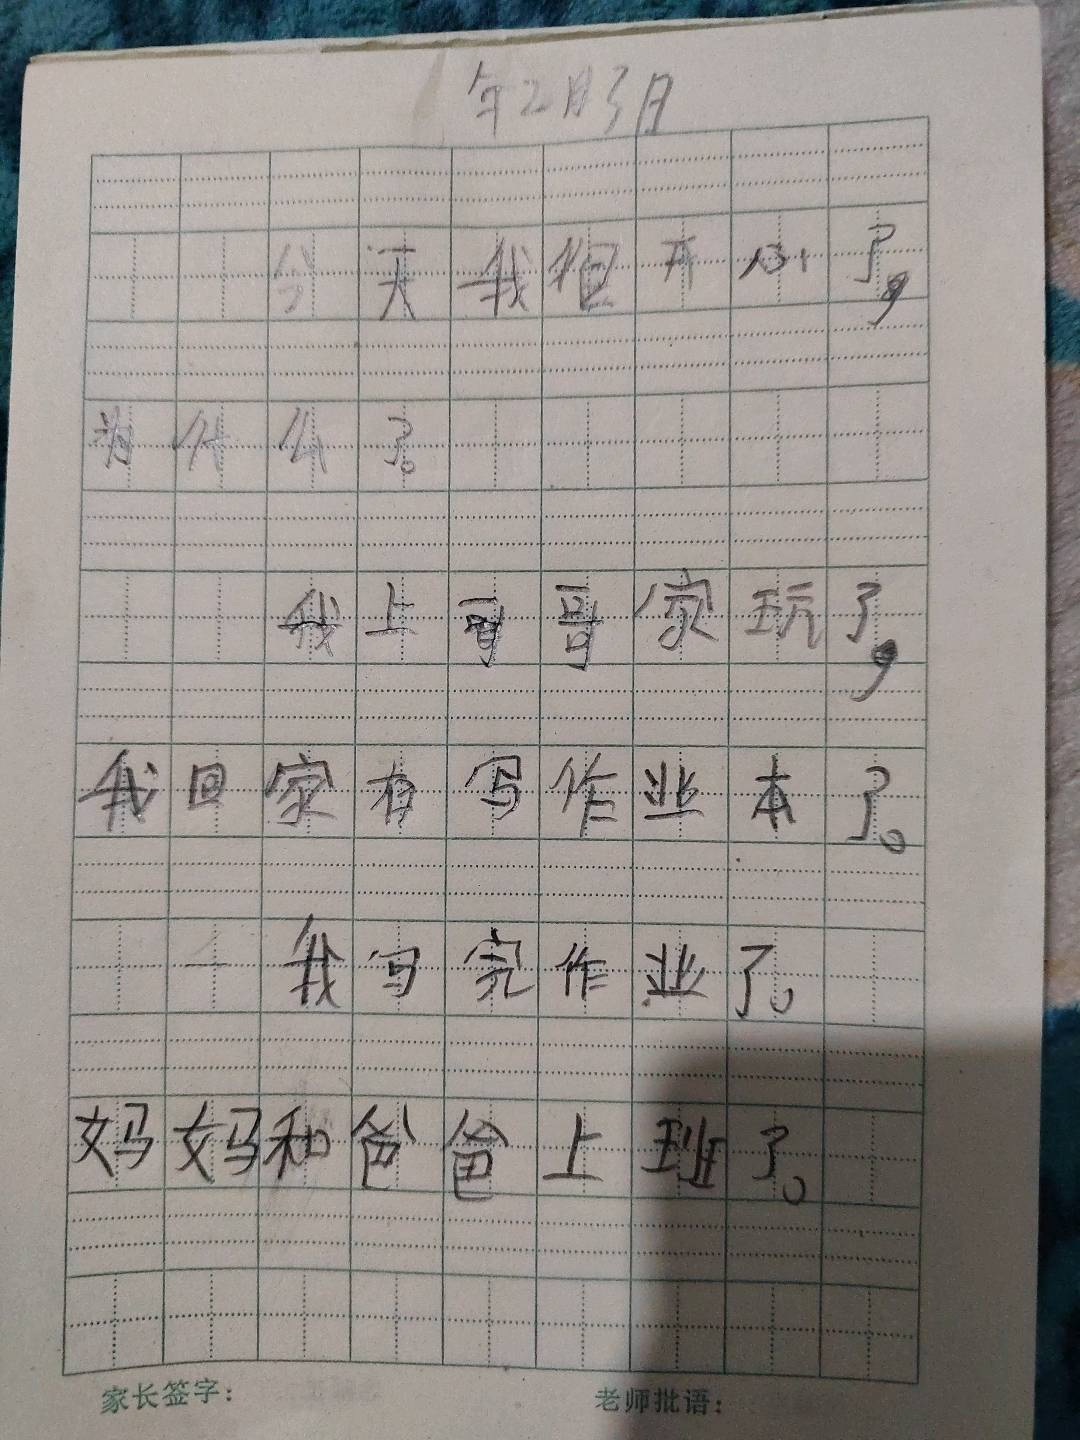 年2月3日
今天我很开心了,
为什么了。
我上哥哥家玩了,
我回家有写作业本了。
我写完作业了。
妈妈和爸爸上班了。
家长签字: 老师批语: